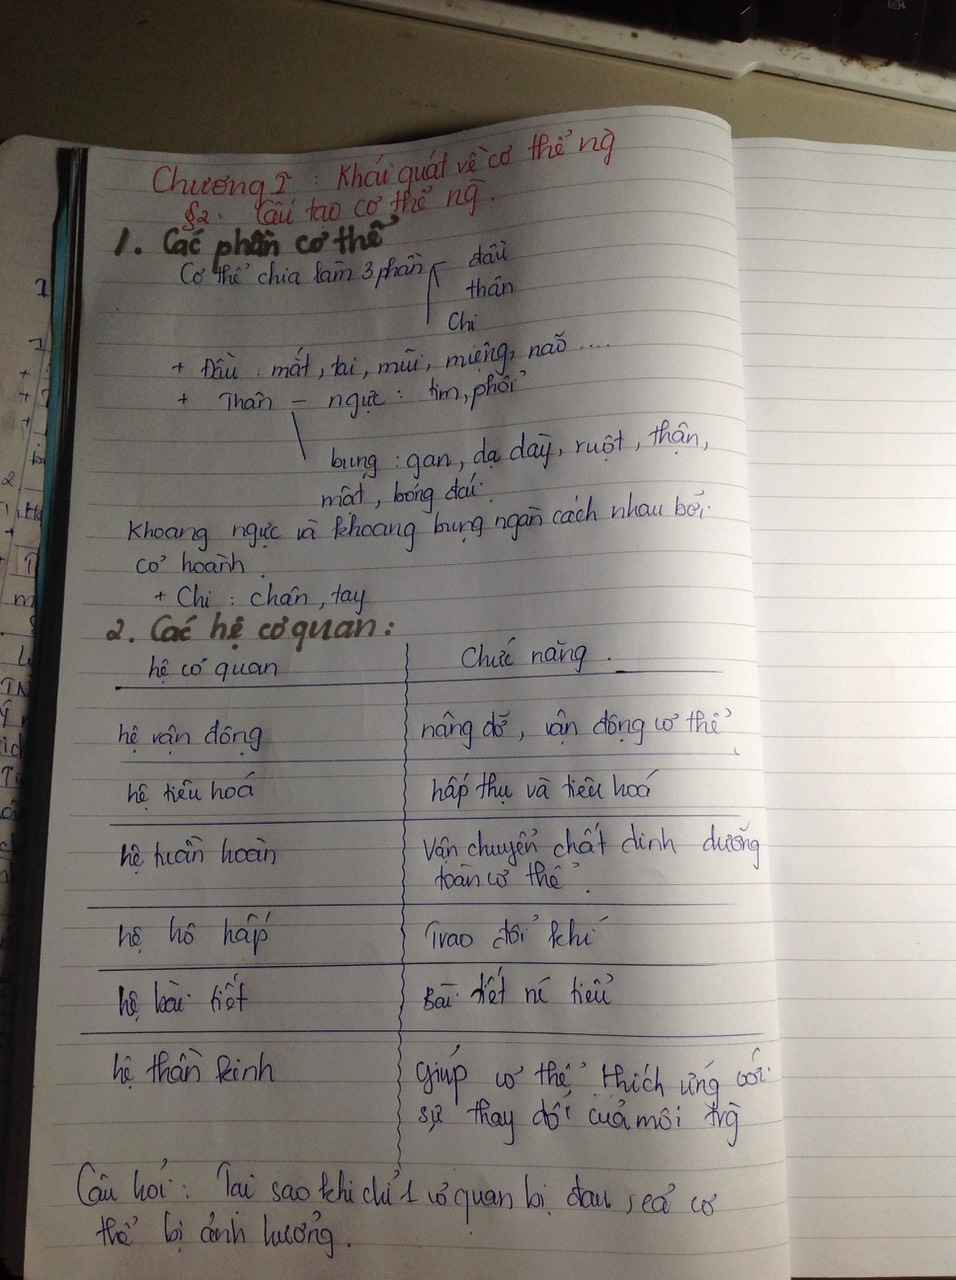 Chương I : Khái quát về cơ thể ng̃
§2. Cấu tạo cơ thể ng̃.
1. Các phần cơ thể
Cơ thể chia làm 3 phần đầu
thân
Chi
+ Đầu : mắt, tai, mũi, miệng, não ....
+ Thân – ngực : tim, phổi
bụng : gan, dạ dày, ruột, thận,
mật, bóng đái.
Khoang ngực và khoang bụng ngăn cách nhau bởi
cơ hoành.
+ Chi : chân, tay
2. Các hệ cơ quan :
hệ cơ quan Chức năng.
hệ vận động nâng đỡ, vận động cơ thể
hệ tiêu hoá hấp thụ và tiêu hoá
hệ tuần hoàn Vận chuyển chất dinh dưỡng
toàn cơ thể.
hệ hô hấp Trao đổi khí
hệ bài tiết Bài tiết nc tiểu
hệ thần kinh Giúp cơ thể thích ứng với
sự thay đổi của môi trg̃
Câu hỏi : Tại sao khi chỉ 1 cơ quan bị đau, cả cơ
thể bị ảnh hưởng.